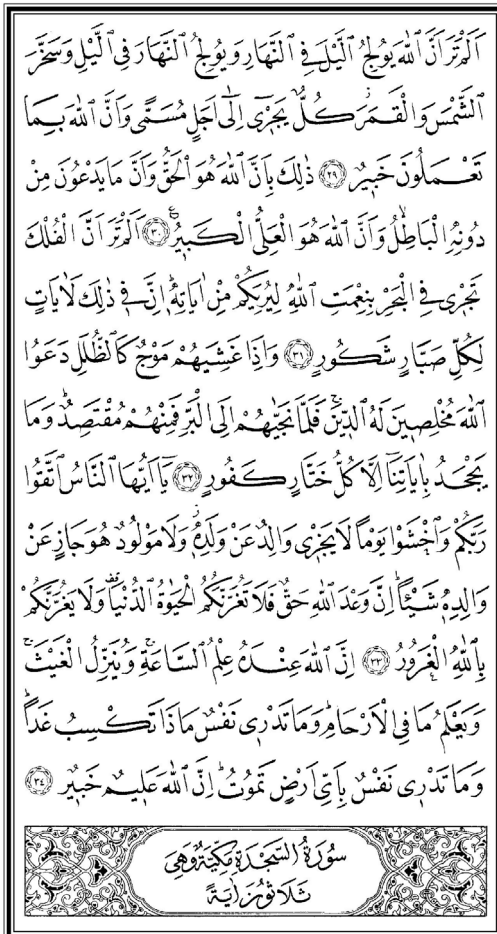 اَلَمْ تَرَ اَنَّ اللّٰهَ يُولِجُ الَّيْلَ فِى النَّهَارِ وَيُولِجُ النَّهَارَ فِى الَّيْلِ وَسَخَّرَ
الشَّمْسَ وَالْقَمَرَ كُلٌّ يَجْرٖٓى اِلٰٓى اَجَلٍ مُسَمًّى وَاَنَّ اللّٰهَ بِمَا
تَعْمَلُونَ خَبٖيرٌ ﴿٢٩﴾ ذٰلِكَ بِاَنَّ اللّٰهَ هُوَ الْحَقُّ وَاَنَّ مَا يَدْعُونَ مِنْ
دُونِهِ الْبَاطِلُۙ وَاَنَّ اللّٰهَ هُوَ الْعَلِىُّ الْكَبٖيرُ ﴿٣٠﴾ اَلَمْ تَرَ اَنَّ الْفُلْكَ
تَجْرٖى فِى الْبَحْرِ بِنِعْمَتِ اللّٰهِ لِيُرِيَكُمْ مِنْ اٰيَاتِهٖؕ اِنَّ فٖى ذٰلِكَ لَاٰيَاتٍ
لِكُلِّ صَبَّارٍ شَكُورٍ ﴿٣١﴾ وَاِذَا غَشِيَهُمْ مَوْجٌ كَالظُّلَلِ دَعَوُا
اللّٰهَ مُخْلِصٖينَ لَهُ الدّٖينَۚ فَلَمَّا نَجّٰيهُمْ اِلَى الْبَرِّ فَمِنْهُمْ مُقْتَصِدٌؕ وَمَا
يَجْحَدُ بِاٰيَاتِنَٓا اِلَّا كُلُّ خَتَّارٍ كَفُورٍ ﴿٣٢﴾ يَٓا اَيُّهَا النَّاسُ اتَّقُوا
رَبَّكُمْ وَاخْشَوْا يَوْمًا لَا يَجْزٖى وَالِدٌ عَنْ وَلَدِهٖؗ وَلَا مَوْلُودٌ هُوَ جَازٍ عَنْ
وَالِدِهٖ شَيْـًٔاؕ اِنَّ وَعْدَ اللّٰهِ حَقٌّ فَلَا تَغُرَّنَّكُمُ الْحَيٰوةُ الدُّنْيَا۠ وَلَا يَغُرَّنَّكُمْ
بِاللّٰهِ الْغَرُورُ ﴿٣٣﴾ اِنَّ اللّٰهَ عِنْدَهُ عِلْمُ السَّاعَةِۚ وَيُنَزِّلُ الْغَيْثَۚ
وَيَعْلَمُ مَا فِى الْاَرْحَامِؕ وَمَا تَدْرٖى نَفْسٌ مَاذَا تَكْسِبُ غَدًاؕ
وَمَا تَدْرٖى نَفْسٌ بِاَىِّ اَرْضٍ تَمُوتُؕ اِنَّ اللّٰهَ عَلٖيمٌ خَبٖيرٌ ﴿٣٤﴾
سُورَةُ السَّجْدَةِ مَكِّيَّةٌ وَهِىَ
ثَلَاثُونَ اٰيَةً